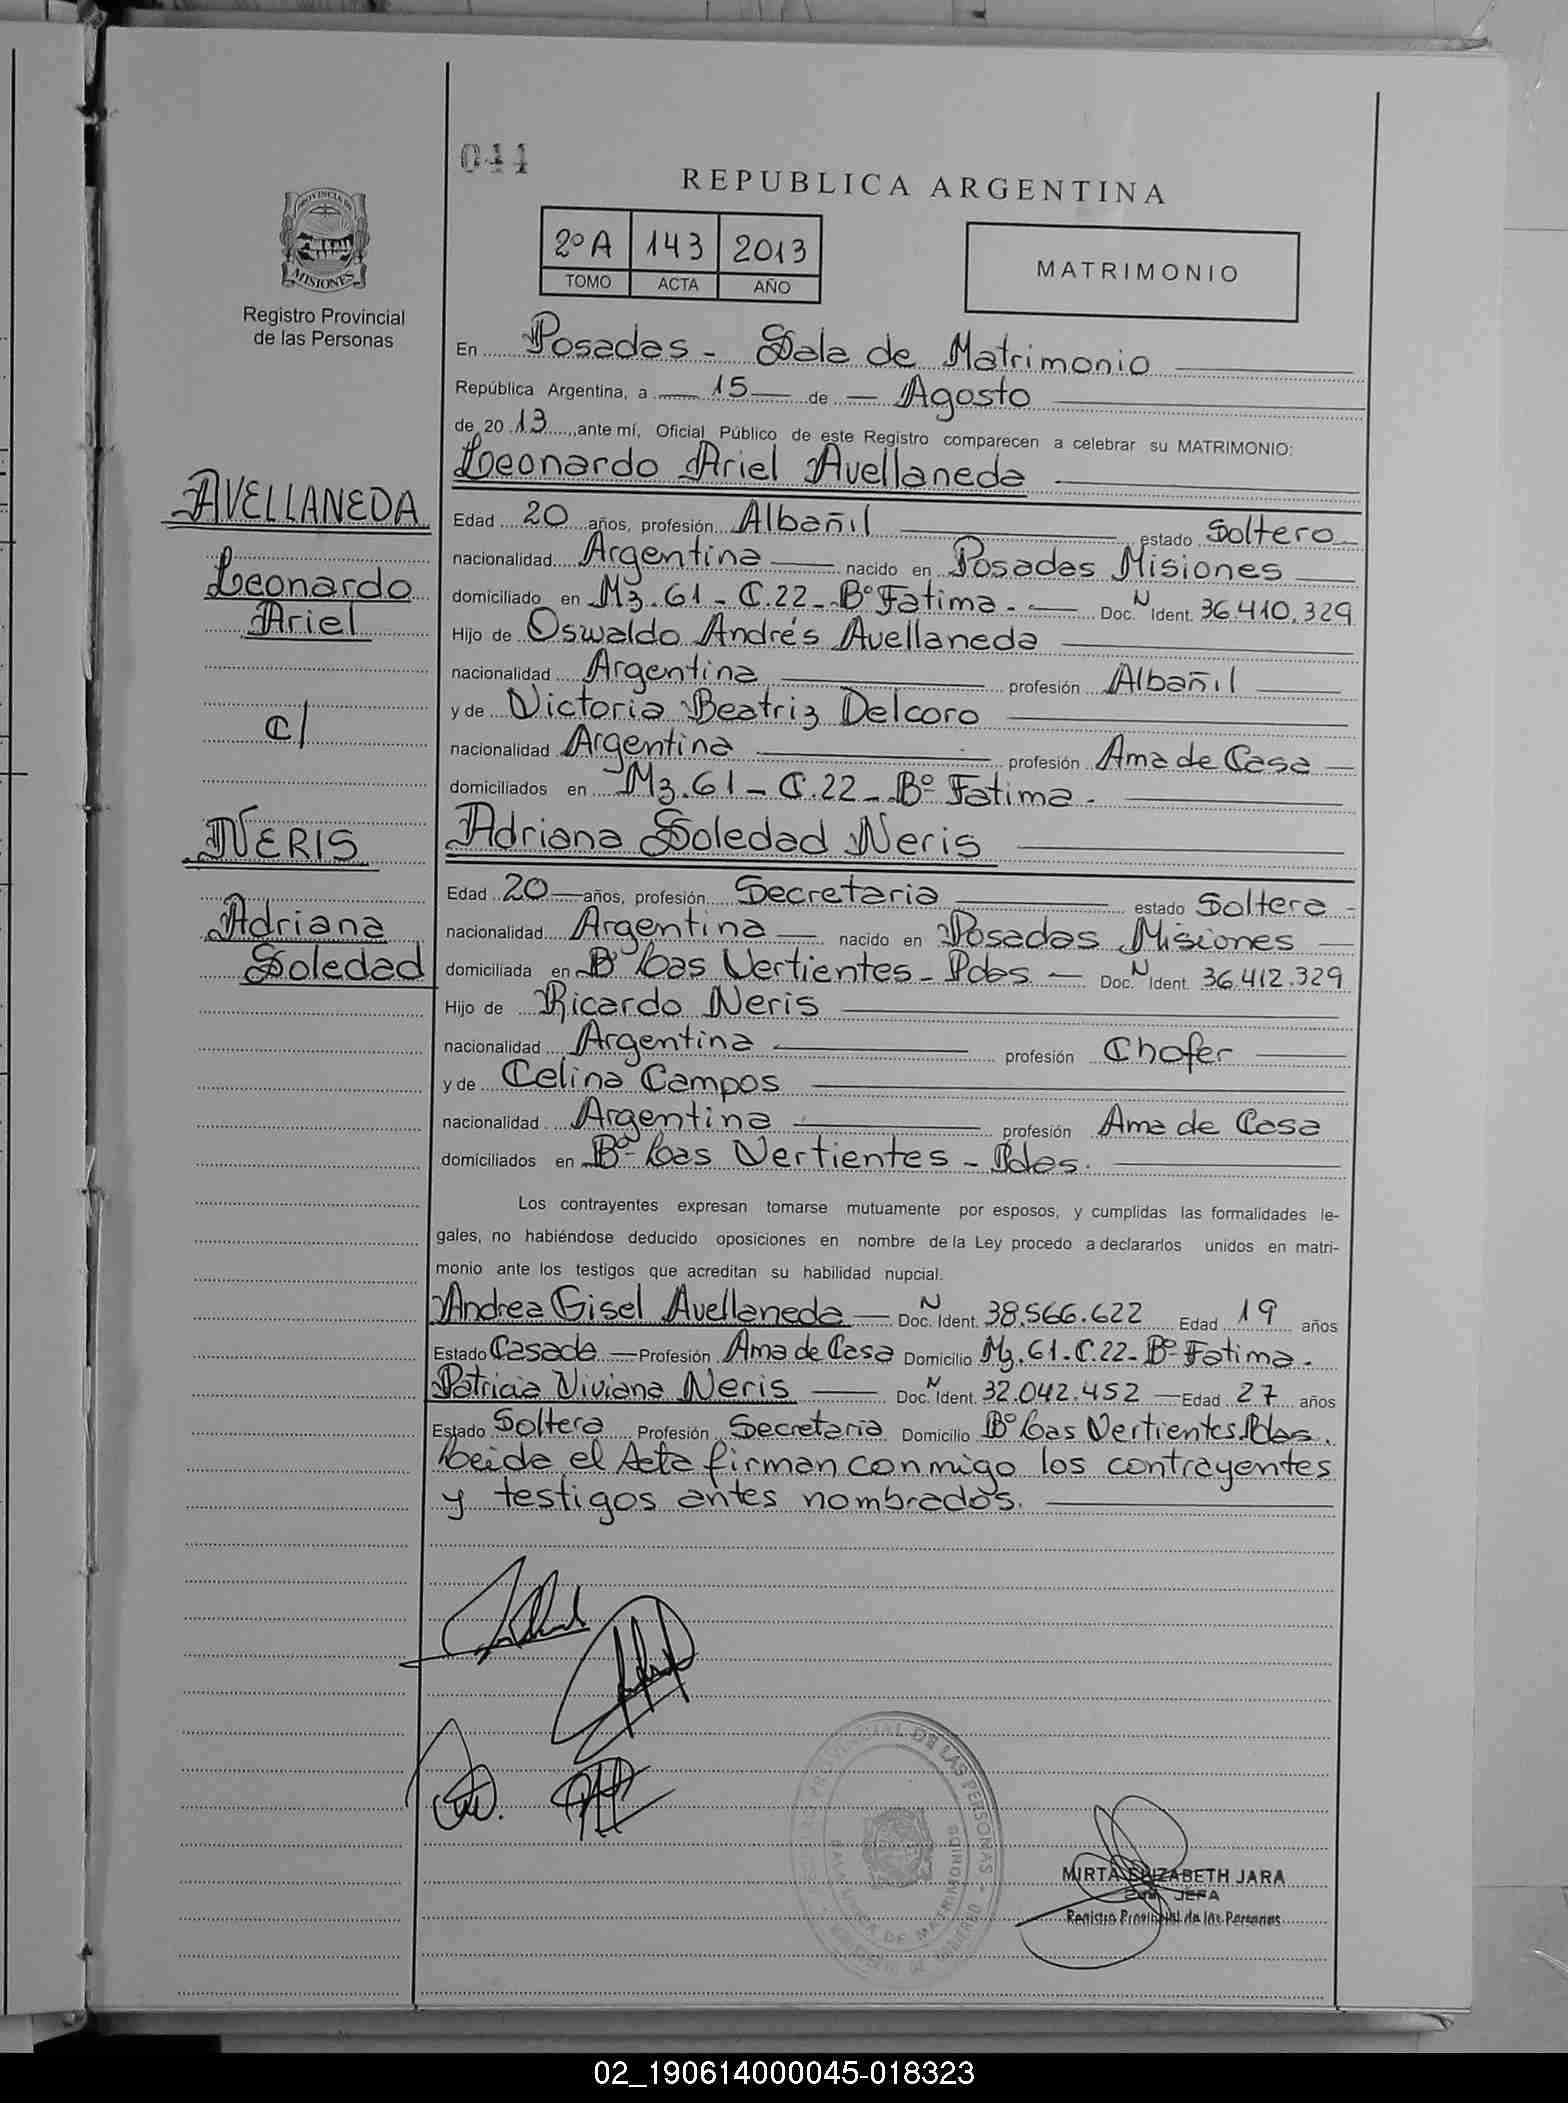 044
REPUBLICA ARGENTINA
PROVINCIA DE
MISIONES
Registro Provincial
de las Personas
2º A 143 2013
TOMO ACTA AÑO
MATRIMONIO
En Posadas - Sala de Matrimonio
República Argentina, a 15 de Agosto
de 2013, ante mí, Oficial Público de este Registro comparecen a celebrar su MATRIMONIO:
Leonardo Ariel Avellaneda
AVELLANEDA
Leonardo
Ariel
c/
NERIS
Adriana
Soledad
Edad 20 años, profesión Albañil estado Soltero
nacionalidad Argentina nacido en Posadas Misiones
domiciliado en Mz. 61 - C. 22 - Bº Fatima. - Doc. N Ident. 36.410.329
Hijo de Oswaldo Andrés Avellaneda
nacionalidad Argentina profesión Albañil
y de Victoria Beatriz Delcoro
nacionalidad Argentina profesión Ama de Casa
domiciliados en Mz. 61 - C. 22 - Bº Fatima.
Adriana Soledad Neris
Edad 20 años, profesión Secretaria estado Soltera
nacionalidad Argentina nacido en Posadas Misiones
domiciliada en Bº Las Vertientes - Pdas - Doc. N Ident. 36.412.329
Hijo de Ricardo Neris
nacionalidad Argentina profesión Chofer
y de Celina Campos
nacionalidad Argentina profesión Ama de Casa
domiciliados en Bº Las Vertientes - Pdas.
Los contrayentes expresan tomarse mutuamente por esposos, y cumplidas las formalidades le-
gales, no habiéndose deducido oposiciones en nombre de la Ley procedo a declararlos unidos en matri-
monio ante los testigos que acreditan su habilidad nupcial.
Andrea Gisel Avellaneda - Doc. N Ident. 38.566.622 Edad 19 años
Estado Casada Profesión Ama de Casa Domicilio Mz. 61 - C. 22 - Bº Fatima.
Patricia Viviana Neris Doc. N Ident. 32.042.452 Edad 27 años
Estado Soltera Profesión Secretaria Domicilio Bº Las Vertientes. Pdas.
Leida el Acta firman conmigo los contrayentes
y testigos antes nombrados.
PROVINCIAL DE LAS PERSONAS
DE MATRIMONIOS
MIRTA ELIZABETH JARA
JEFA
Registro Provincial de las Personas
02_190614000045-018323